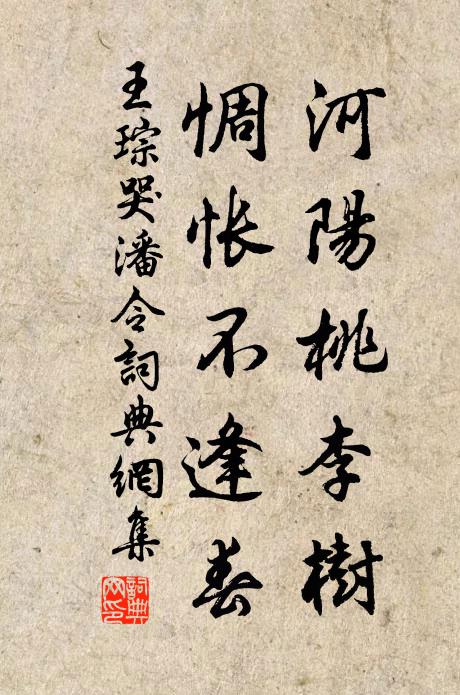 河陽桃李樹
惆悵不逢春
王琮哭潘令詞典網集
詞典网印